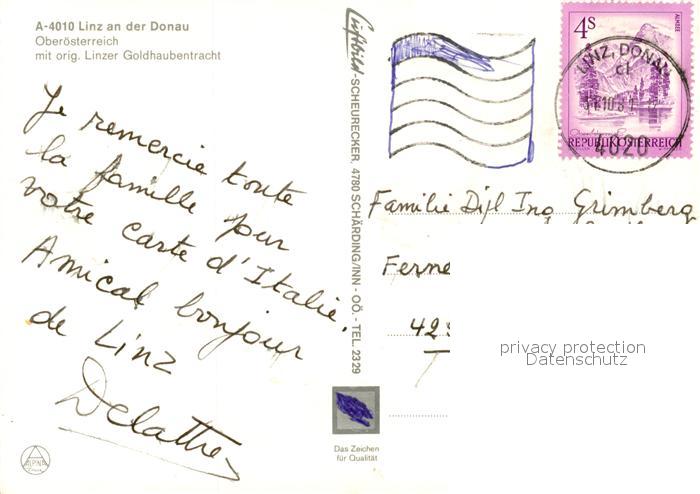 A-4010 Linz an der Donau
Oberösterreich
mit orig. Linzer Goldhaubentracht
Je remercie toute
la famille pour
votre carte d'Italie.
Amical bonjour
de Linz
Delattre
ALPINA
Luftbild-SCHEURECKER, 4780 SCHÄRDING/INN - OÖ. - TEL. 2329
Das Zeichen
für Qualität
4S
ALMSEE
REPUBLIK ÖSTERREICH
LINZ, DONAU
4020
Familie Dipl Ing Grimberg
Ferne
42
privacy protection
Datenschutz